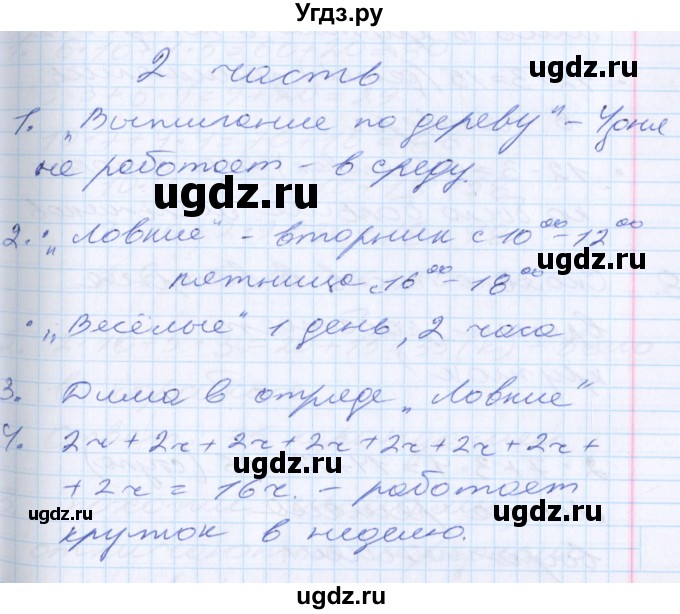 Угдз.ру
2 часть
1. „Выпиливание по дереву“ –
не работает – в среду.
2. • „Ловкие“ – вторник с 10⁰⁰–12⁰⁰
пятница с 16⁰⁰–18⁰⁰
• „Весёлые“ 1 день, 2 часа
3. Дима в отряде „Ловкие“
4. 2ч + 2ч + 2ч + 2ч + 2ч + 2ч + 2ч +
+ 2ч = 16ч. – работает
кружок в неделю.
ugdz.ru
ugdz.ru
ugdz.ru
ugdz.ru
ugdz.ru
ugdz.ru
ugdz.ru
ugdz.ru
ugdz.ru
ugdz.ru